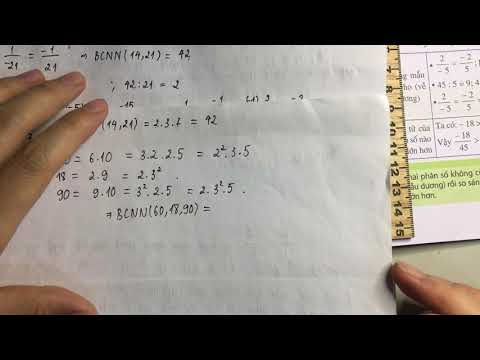 1/-21 = -1/21 ⇒ BCNN(14,21) = 42
42:21 = 2
(14,21) = 2.3.7 = 42
0 = 6.10 = 3.2.2.5 = 2².3.5
18 = 2.9 = 2.3².
90 = 9.10 = 3².2.5 = 2.3².5.
⇒ BCNN(60,18,90) =
2/-5 = -2/5;
45:5 = 9; 4
2/-5 = -2/5
mẫu
(về
ng)
tử của
số nào
ớn hơn
Ta có: -18 >
Vậy -18/45 >
hai phân số không c
ẫu dương) rồi so sán
ớn hơn.
6 7 8 9 10 11 12 13 14 15